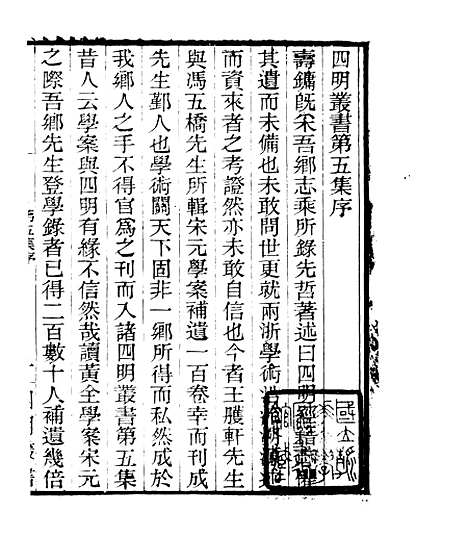 四明叢書第五集序
壽鏞旣采吾鄉志乘所錄先哲著述曰四明經籍
其遺而未備也未敢問世更就兩浙學術
而資來者之考證然亦未敢自信也今者王䕶軒先生
與馮五橋先生所輯宋元學案補遺一百卷幸而刊成
先生鄞人也學術關天下固非一鄉所得而私然成於
我鄉人之手不得官爲之刊而入諸四明叢書第五集
昔人云學案與四明有緣不信然哉讀黃全學案宋元
之際吾鄉先生登學錄者已得二百數十人補遺幾倍